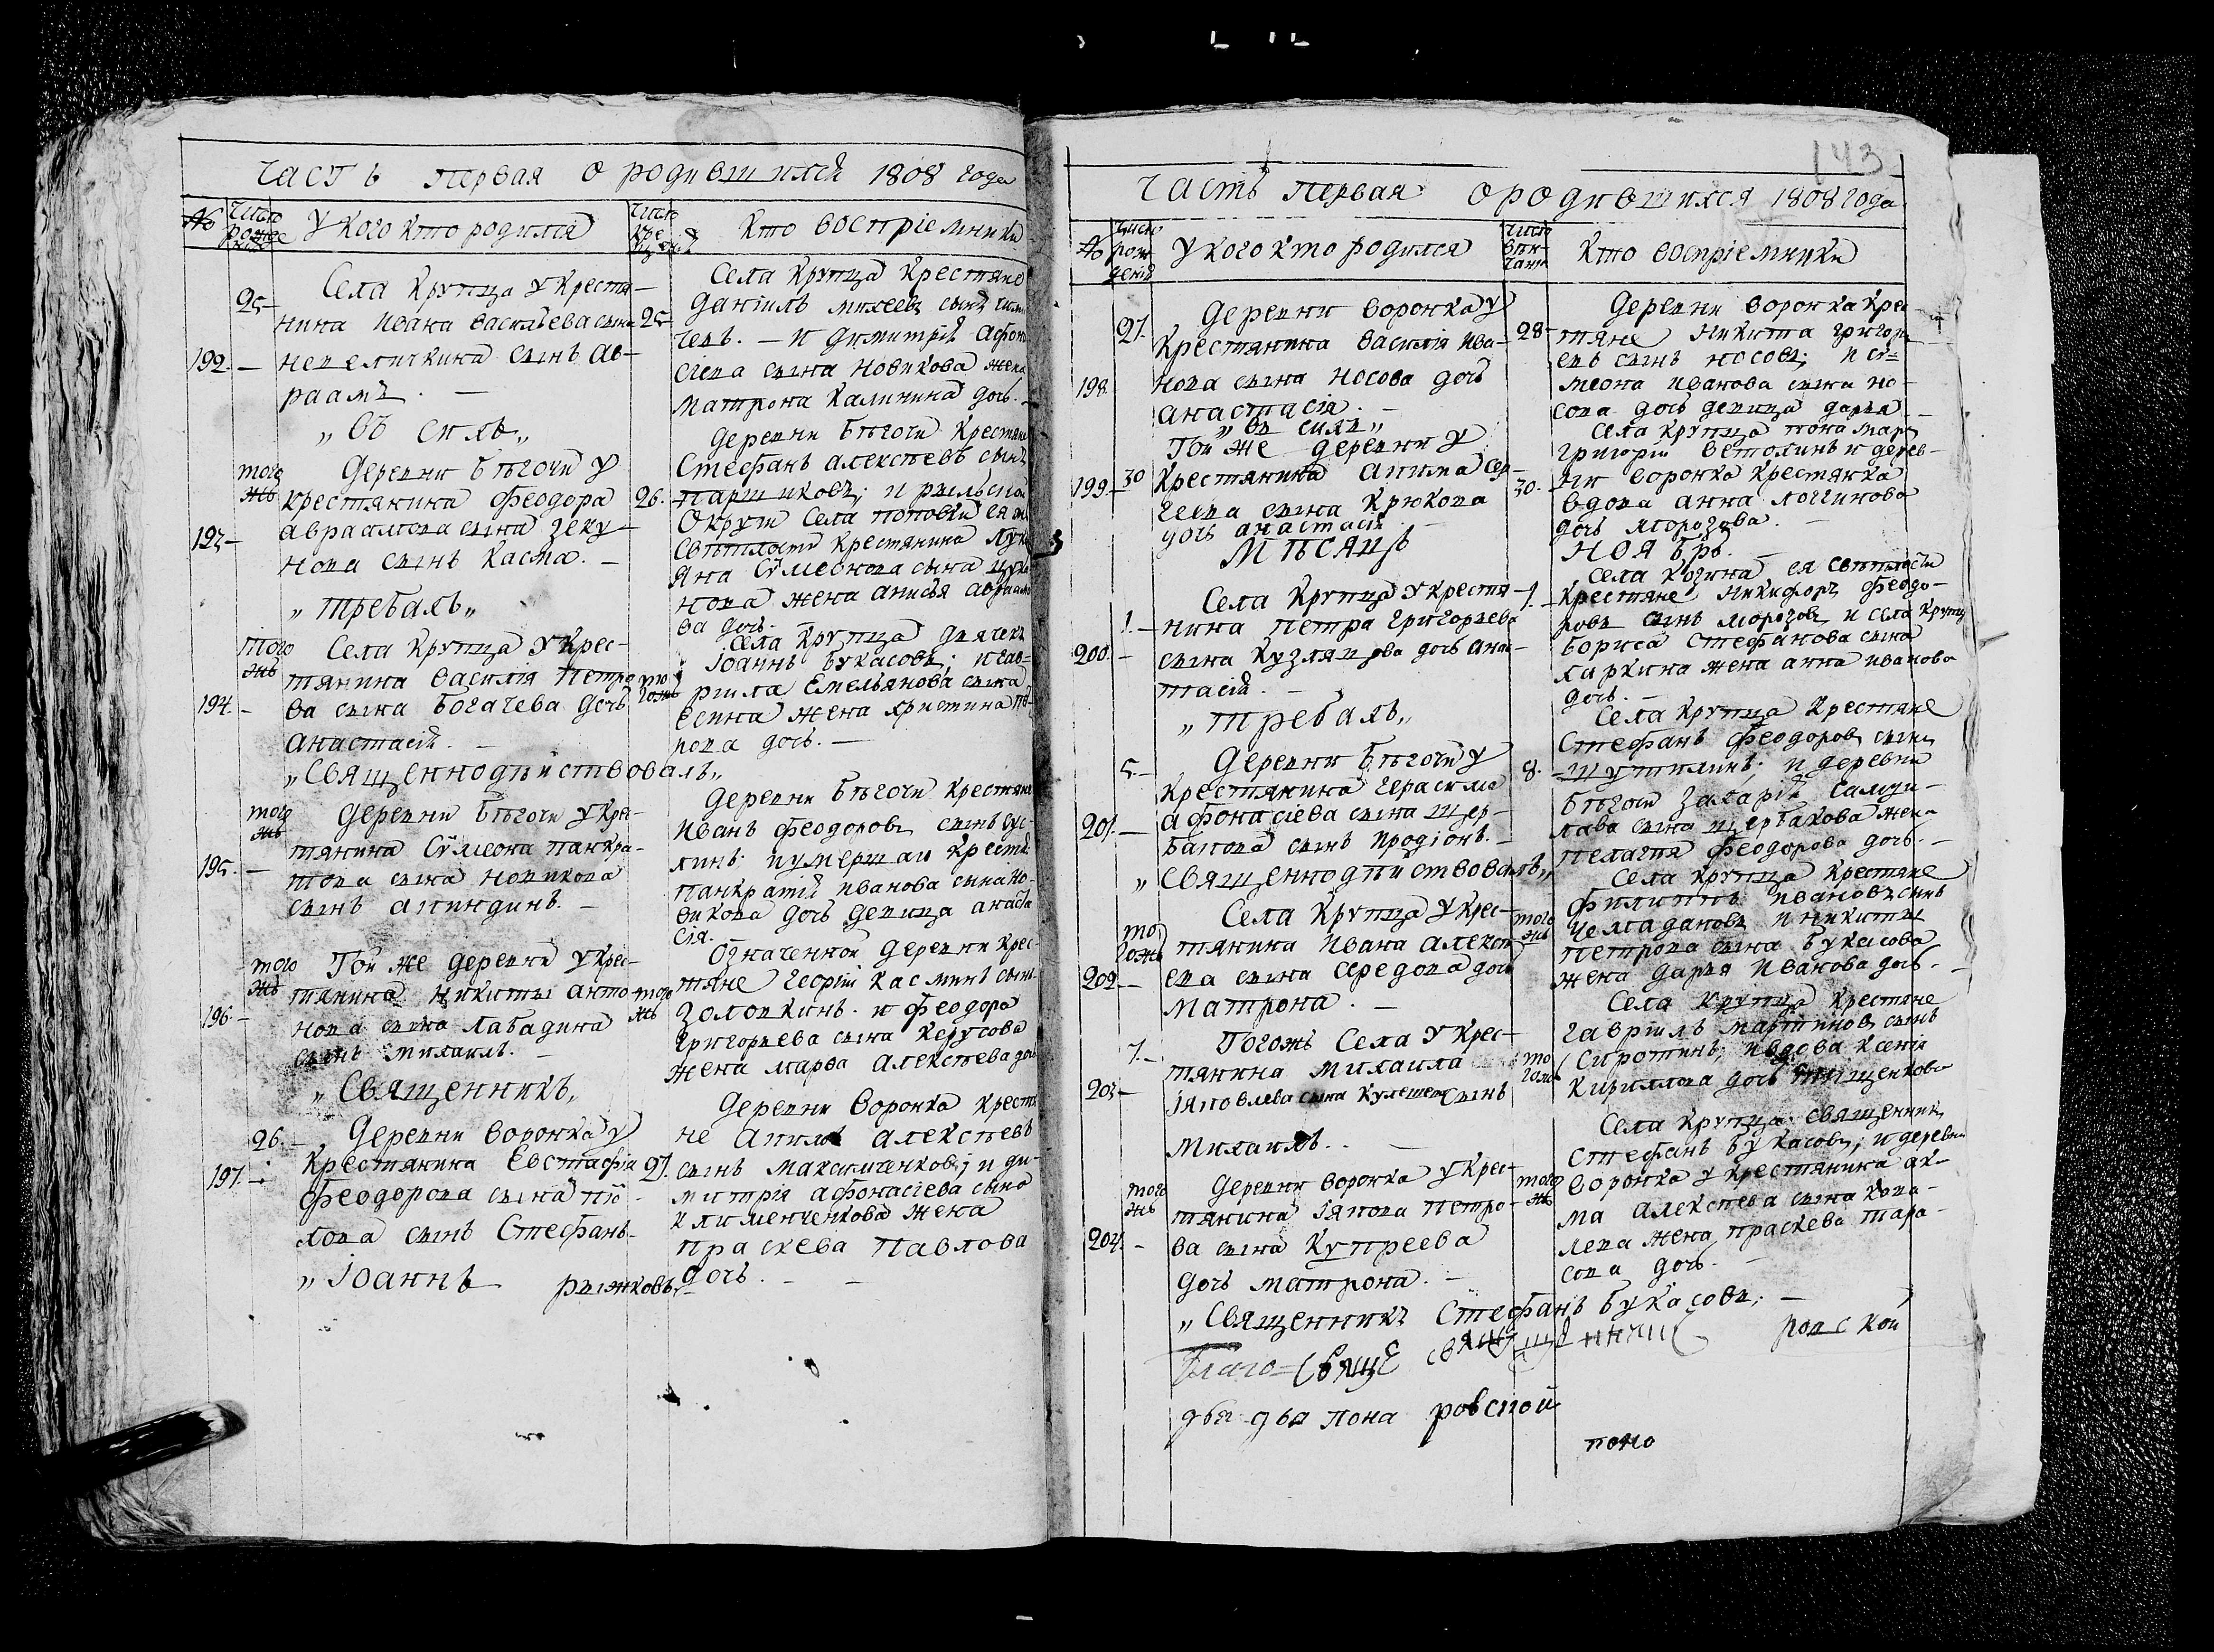 Часть первая о родившихся 1808 года
№
число рожде
У кого кто родился
число
кре
Кто воспріемники
25
Села Крупца у крестья-
нина Ивана Васильева сына
192. —
непеличкина сынъ Ав-
раамъ. —
25
Села Крупца крестяне
Даніилъ михеевъ сынъ
чевъ. — и Димитрій Афона
сіева сына Новикова жена
Матрона Калинина дочь. —
„ въ силѣ „
того жъ
Деревни Бѣгочи у
крестянина Феодора
193 —
Авраамова сына Зеку-
нова сынъ Касма. —
26.
Деревни Бѣгочи крестяне
Стефанъ Алексѣевъ сынъ
Паршиковъ; и рыльской
округи Села поповки ея
свѣтлости крестянина Лукі
яна Сѵмеонова сына
нова жена Анисья Авраамо
ва дочь.
„ требахъ „
того жъ
Села Крупца у крес-
тянина Василія Петро
194. —
ва сына Богачева дочь
Анастасія. —
тогожъ
Села Крупца дьячекъ
Іоаннъ Букасовъ; и Гав-
ріила Емельянова сына
Есина жена Христина
рова дочь. —
„ Священнодѣйствовалъ „
того жъ
Деревни Бѣгочи у кре-
тянина Сѵмеона Панкра-
195. —
това сына Новикова
сынъ Акиндинъ. —
Деревни Бѣгочи крестяне
Иванъ Феодоровъ сынъ Сус-
линъ; и умершаго крестя
Панкратій Иванова сына Но-
викова дочь девица Анаста
сія.
того жъ
Той же деревни у крес-
тянина Никиты Анто
196 —
нова сына Лабадина
сынъ Михаилъ. —
того жъ
Означенной деревни крес-
тяне Георгій Касминъ сынъ
Золоткинъ. и Феодора
Григорьева сына Керусова
жена Марфа Алексѣева дочь
„ Священникъ „
26. —
Деревни Воронка у
крестянина Евстафія
197. —
Феодорова сына
хова сынъ Стефанъ. —
27.
Деревни Воронка крестя
не Акимъ Алексѣевъ
сынъ Максимченковъ; и ди-
митрія Афонасіева сына
Клименченкова жена
Праскева Павлова
дочь. — —
„ Іоаннъ Рыжковъ.
143
Часть первая о родившихся 1808 года
№
число рож денія
У кого кто родился
число
Кто воспріемники
27.
Деревни Воронка у
крестянина Василія Ива-
198.
нова сына Носова дочь
Анастасія. —
28
Деревни Воронка кре
тяне Никита Григорь
евъ сынъ Носовъ; и Сѵ-
меона Иванова сына Но-
сова дочь девица Дарья. —
„ въ силѣ „
Той же деревни у
199 — 30
крестянина Акима Сер-
геева сына Крюкова
дочь Анастасія —
30.
Села Крупца понамарь
Григорій Ветохинъ и дерев-
ни Воронка крестянка
вдова Анна Логгинова
дочь Морозова. —
Мѣсяцъ Ноябрь. —
1. —
Села Крупца у крестя-
нина Петра Григорьева
200. —
сына Кузлякова дочь Анас-
тасія. —
1.
Села Козина ея свѣтлости
крестяне Никифоръ Феодо-
ровъ сынъ Морозовъ и Села Крупц
Бориса Стефанова сына
Ларкина жена Анна Иванова
дочь. —
„ требахъ „
5. —
Деревни Бѣгочи у
крестянина Герасима
201. —
Афонасіева сына Щер-
бакова сынъ Иродіонъ. —
8.
Села Крупца крестяне
Стефанъ Феодоровъ сынъ
Шутихинъ; и деревни
Бѣгочи Захарій Самуи-
лава сына Щербакова жена
Пелагея Феодорова дочь. —
„ Священнодѣйствовалъ „
тогожъ
Села Крупца у крес-
тянина Ивана Алексѣ
202 —
ева сына Середова дочь
Матрона. —
того жъ
Села Крупца крестяне
Филиппъ Ивановъ сынъ
Чемадановъ и Никиты
Петрова сына Букасова
жена Дарья Иванова дочь. —
7. —
Тогожъ Села у крес-
тянина Михаила
203 —
Іяковлева сына Кулешева сынъ
Михаилъ. . —
тогожъ
Села Крупца крестяне
Гавріилъ Мартиновъ сынъ
Сиротинъ; и вдова Ксенія
Кирилова дочь
того жъ
Деревни Воронка у крес-
тянина Іякова Петро-
204. —
ва сына Купреева
дочь Матрона. —
того жъ
Села Крупца священникъ
Стефанъ Букасовъ; и деревни
Воронка у крестянина Аки-
ма Алексѣева сына Кова-
лева жена Праскева Тара-
сова дочь. —
„ Священникъ Стефанъ Букасовъ; —
благо = Свяще ровской
два два пона ровской
поно